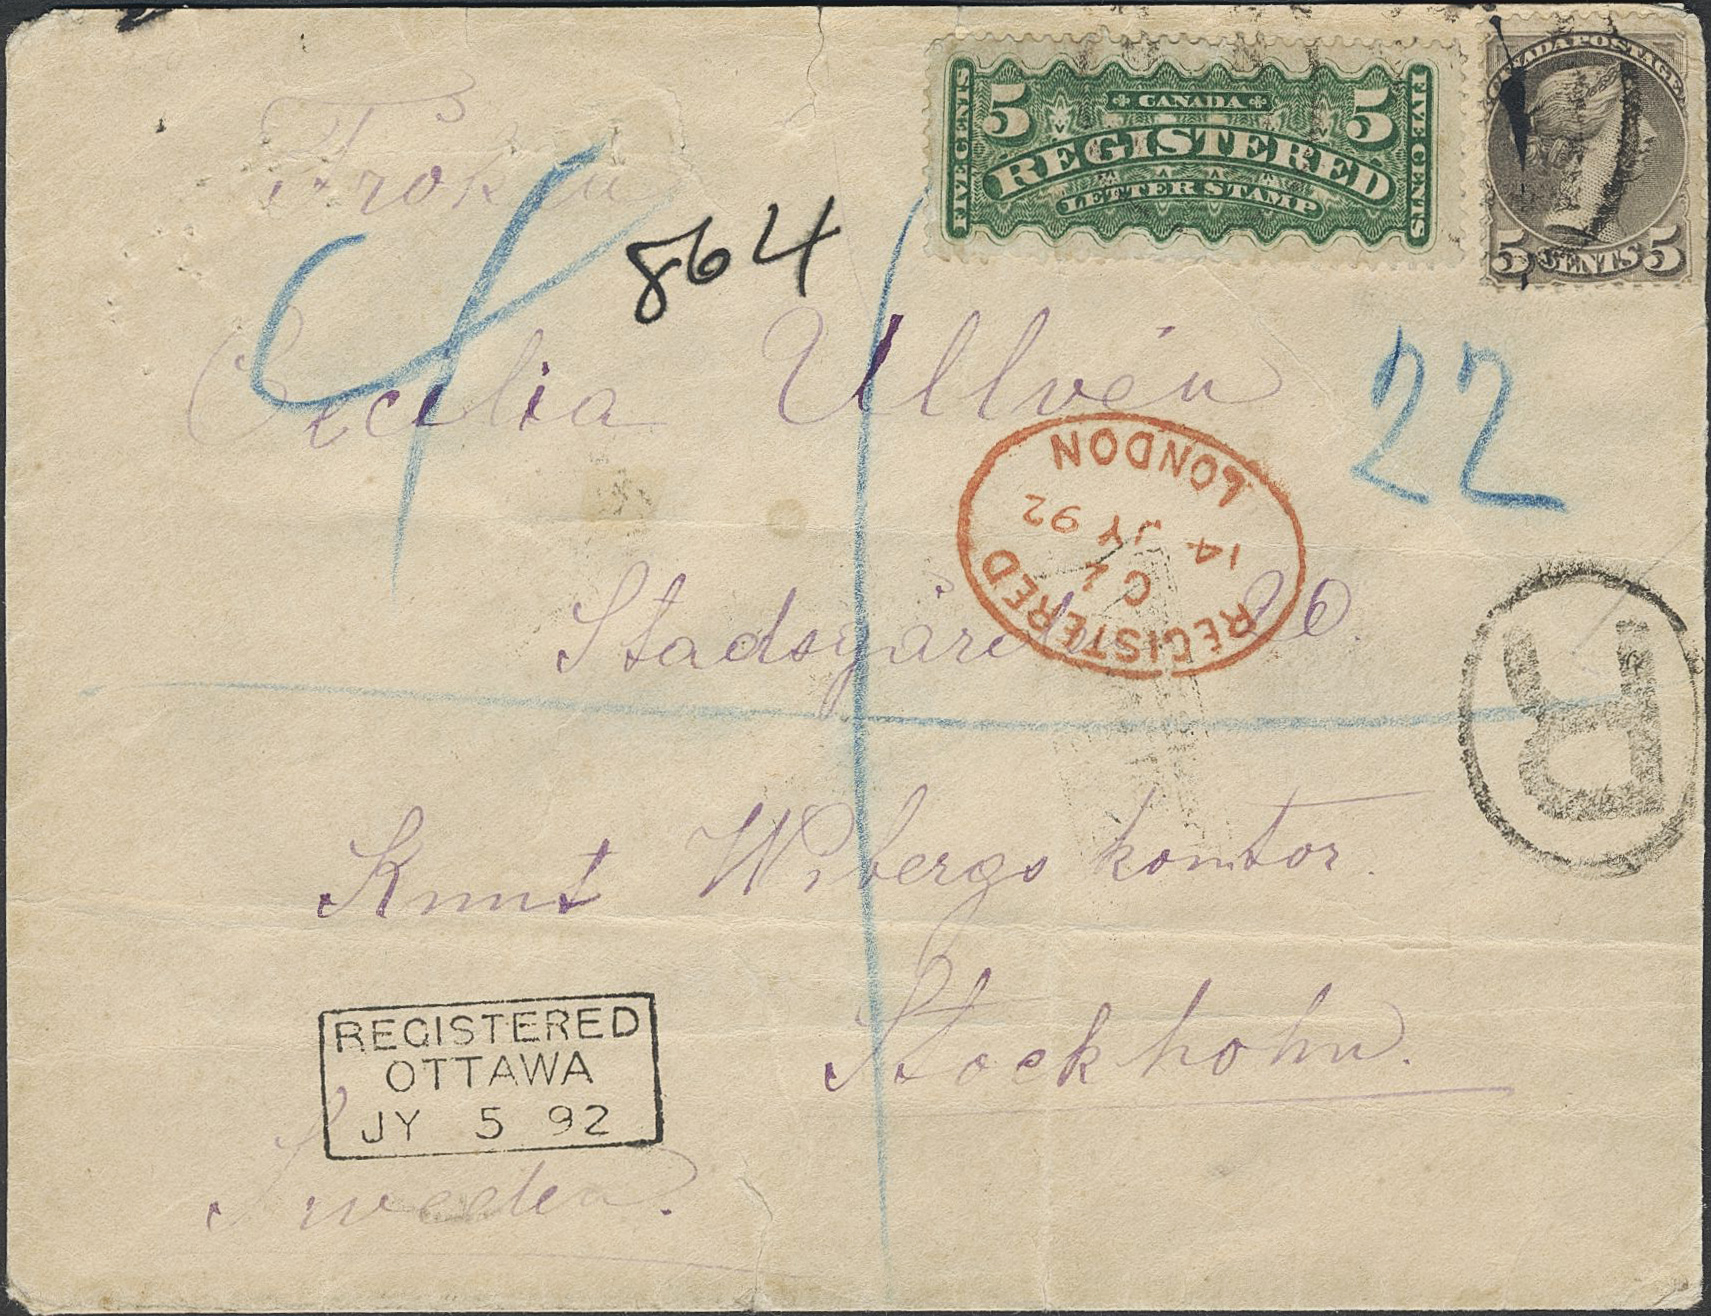 CANADA
5 5
REGISTERED
LETTER STAMP
FIVE CENTS
FIVE CENTS
CANADA POSTAGE
5 CENTS 5
Fröken
864
Cecilia Ullvén
22
LONDON
14 JY 92
REGISTERED
Stadsgården 20.
R
Knut Wibergs kontor.
Stockholm.
REGISTERED
OTTAWA
JY 5 92
Sweden.